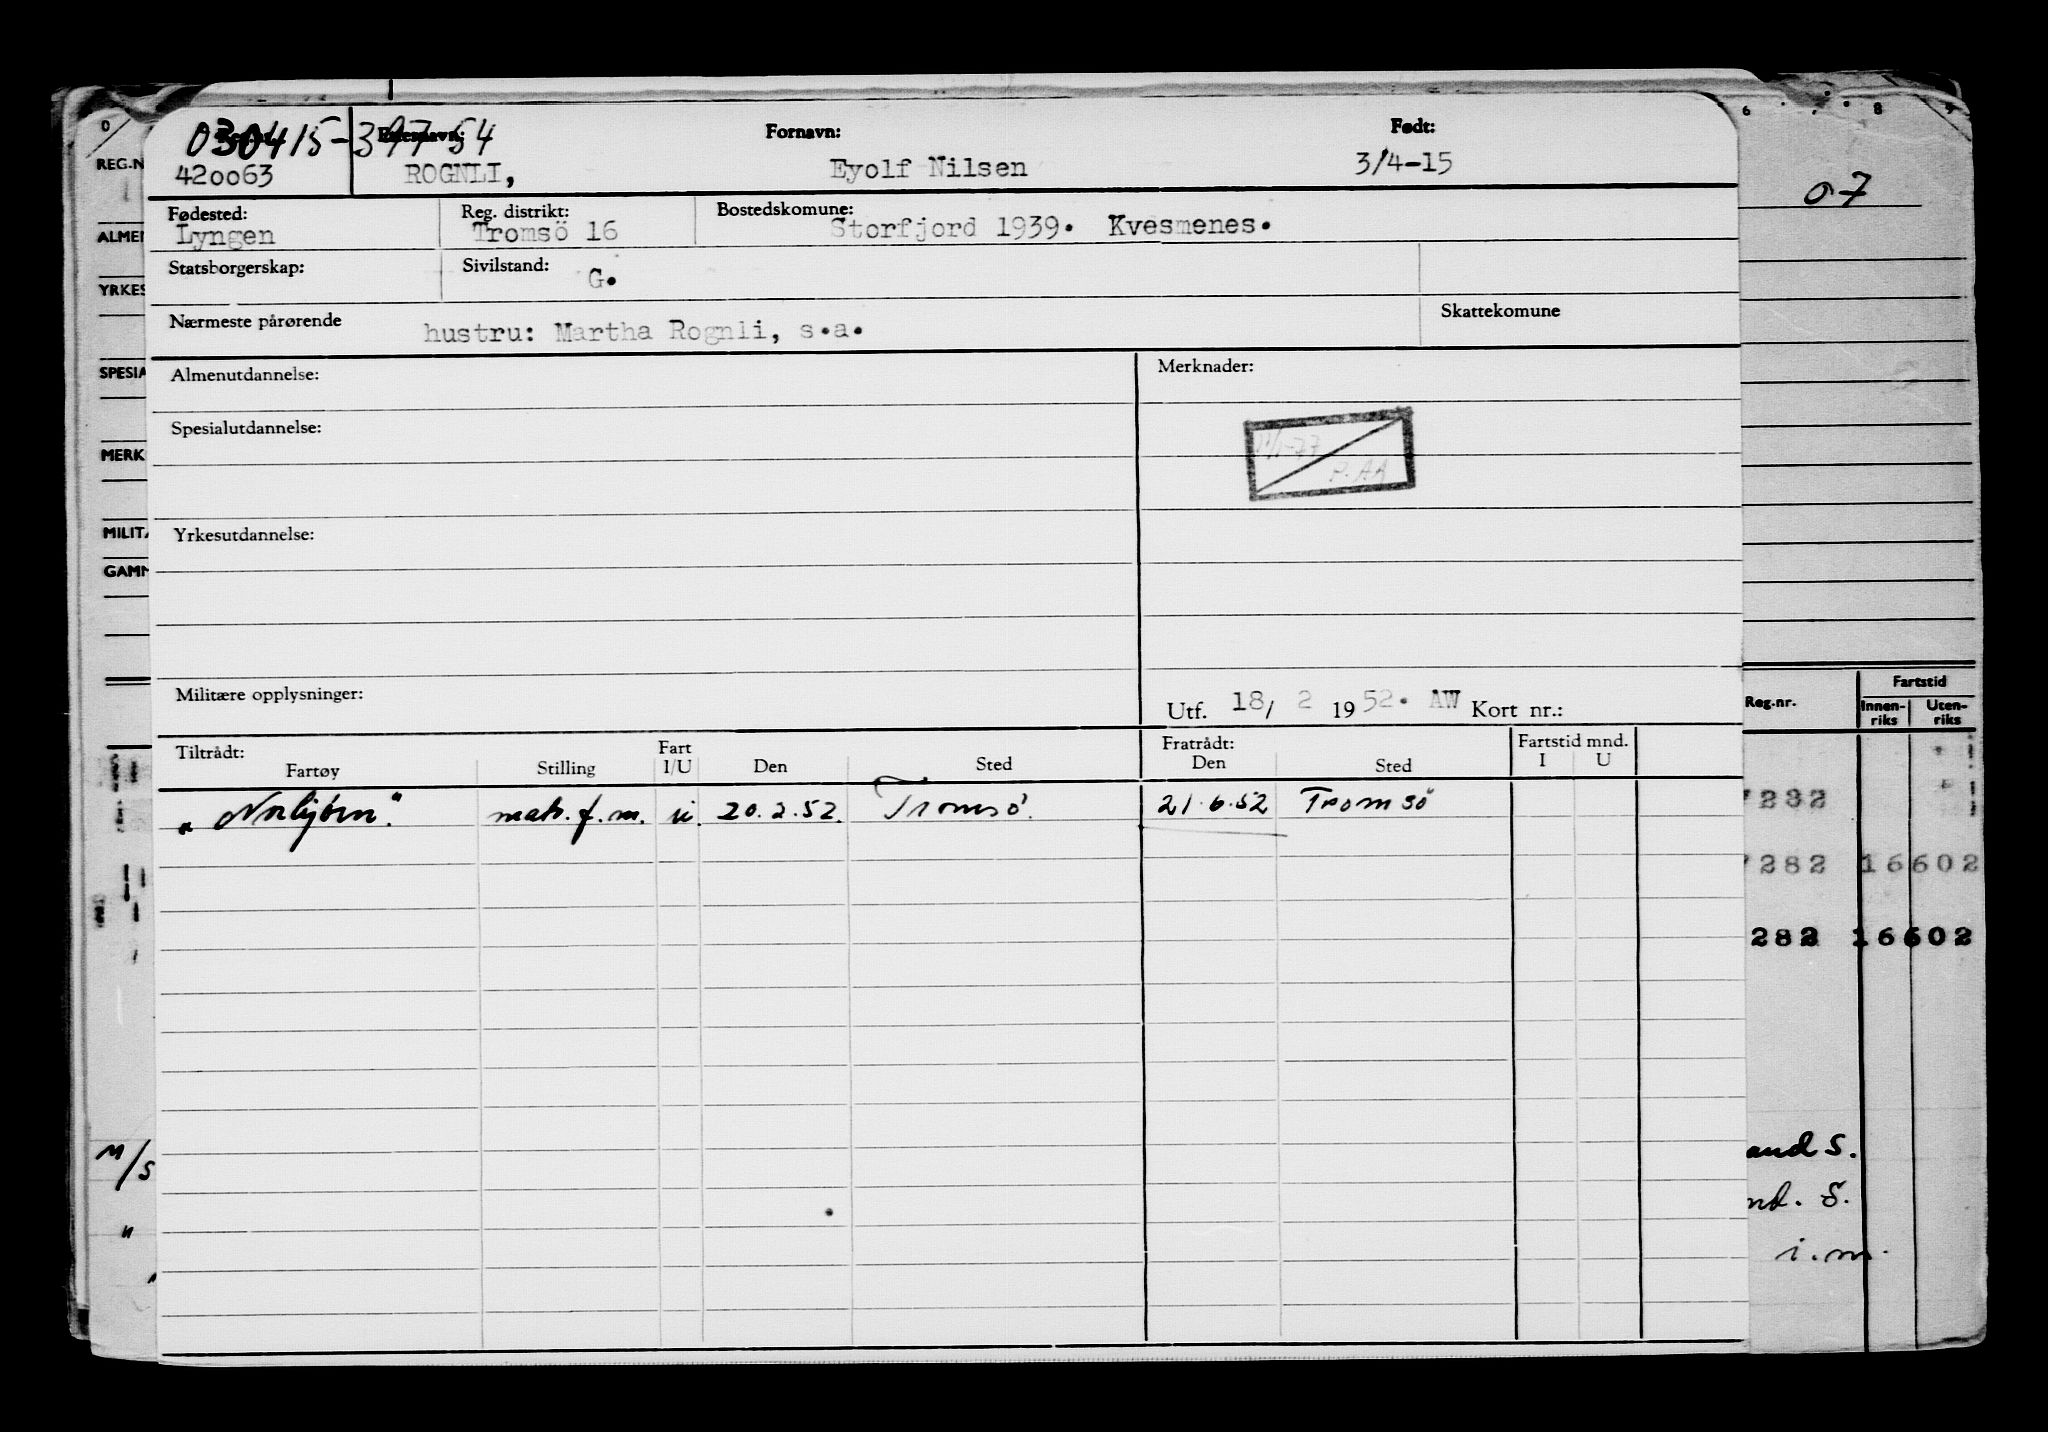 030415-39754
Fornavn:
Født:
420063 ROGNLI, Eyolf Nilsen 3/4-15
REG.N
07
Fødested: Reg. distrikt: Bostedskomune:
Lyngen Tromsö 16 Storfjord 1939. Kvesmenes.
ALMEN
Statsborgerskap: Sivilstand: G.
YRKES
Nærmeste pårørende hustru: Martha Rognli, s.a. Skattekomune
SPESIA
Almenutdannelse: Merknader:
Spesialutdannelse:
11/1-77
P. AA
MERK
MILITÆ
Yrkesutdannelse:
GAMM
Militære opplysninger: Utf. 18/ 2 1952. AW Kort nr.:
Reg.nr. Fartstid
Innen-riks Uten-riks
Tiltrådt: Fart Fratrådt: Fartstid mnd.
Fartøy Stilling I/U Den Sted Den Sted I U
„Norbjörn" matr.f.m. u. 20.2.52. Tromsö. 21.6.52 Tromsö
7282
7282 16602
282 16602
M/S
and S.
nd. S.
"
i.m.